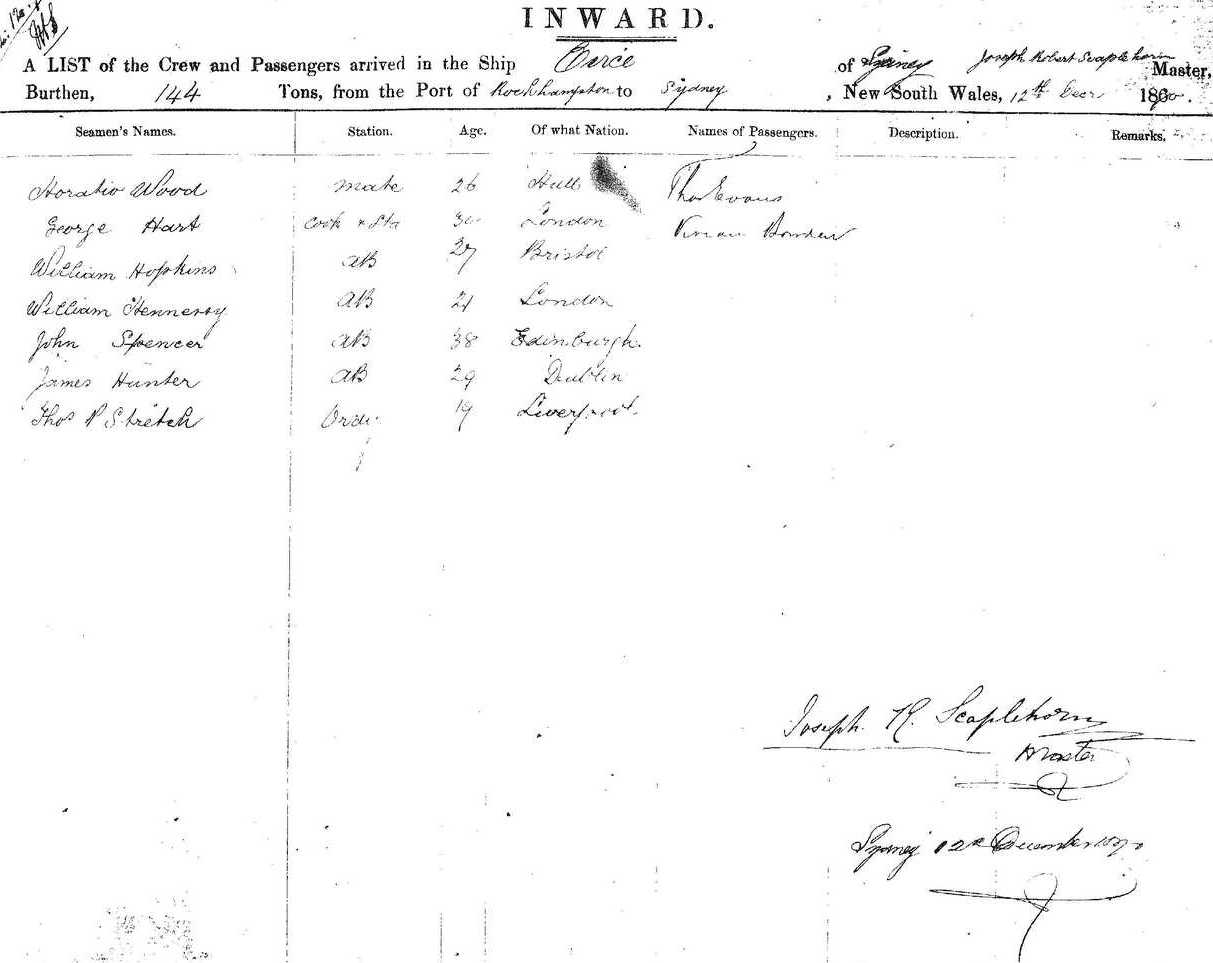 INWARD.
A LIST of the Crew and Passengers arrived in the Ship Circe of Sydney Joseph Robert Scaplehorn Master,
Burthen, 144 Tons, from the Port of Rockhampton to Sydney, New South Wales, 12th Decr 1870.
Seamen's Names. Station. Age. Of what Nation. Names of Passengers. Description. Remarks.
Horatio Wood mate 26 Hull Thos Evans
George Hart Cook & Std London
William Hopkins AB 27 Bristol
William Hennessy AB 21 London
John Spencer AB 38 Edinburgh.
James Hunter AB 29 Dublin
Thos P Stretch Ordy 19 Liverpool.
Joseph. R. Scaplehorn
Master
Sydney 12th December 1870